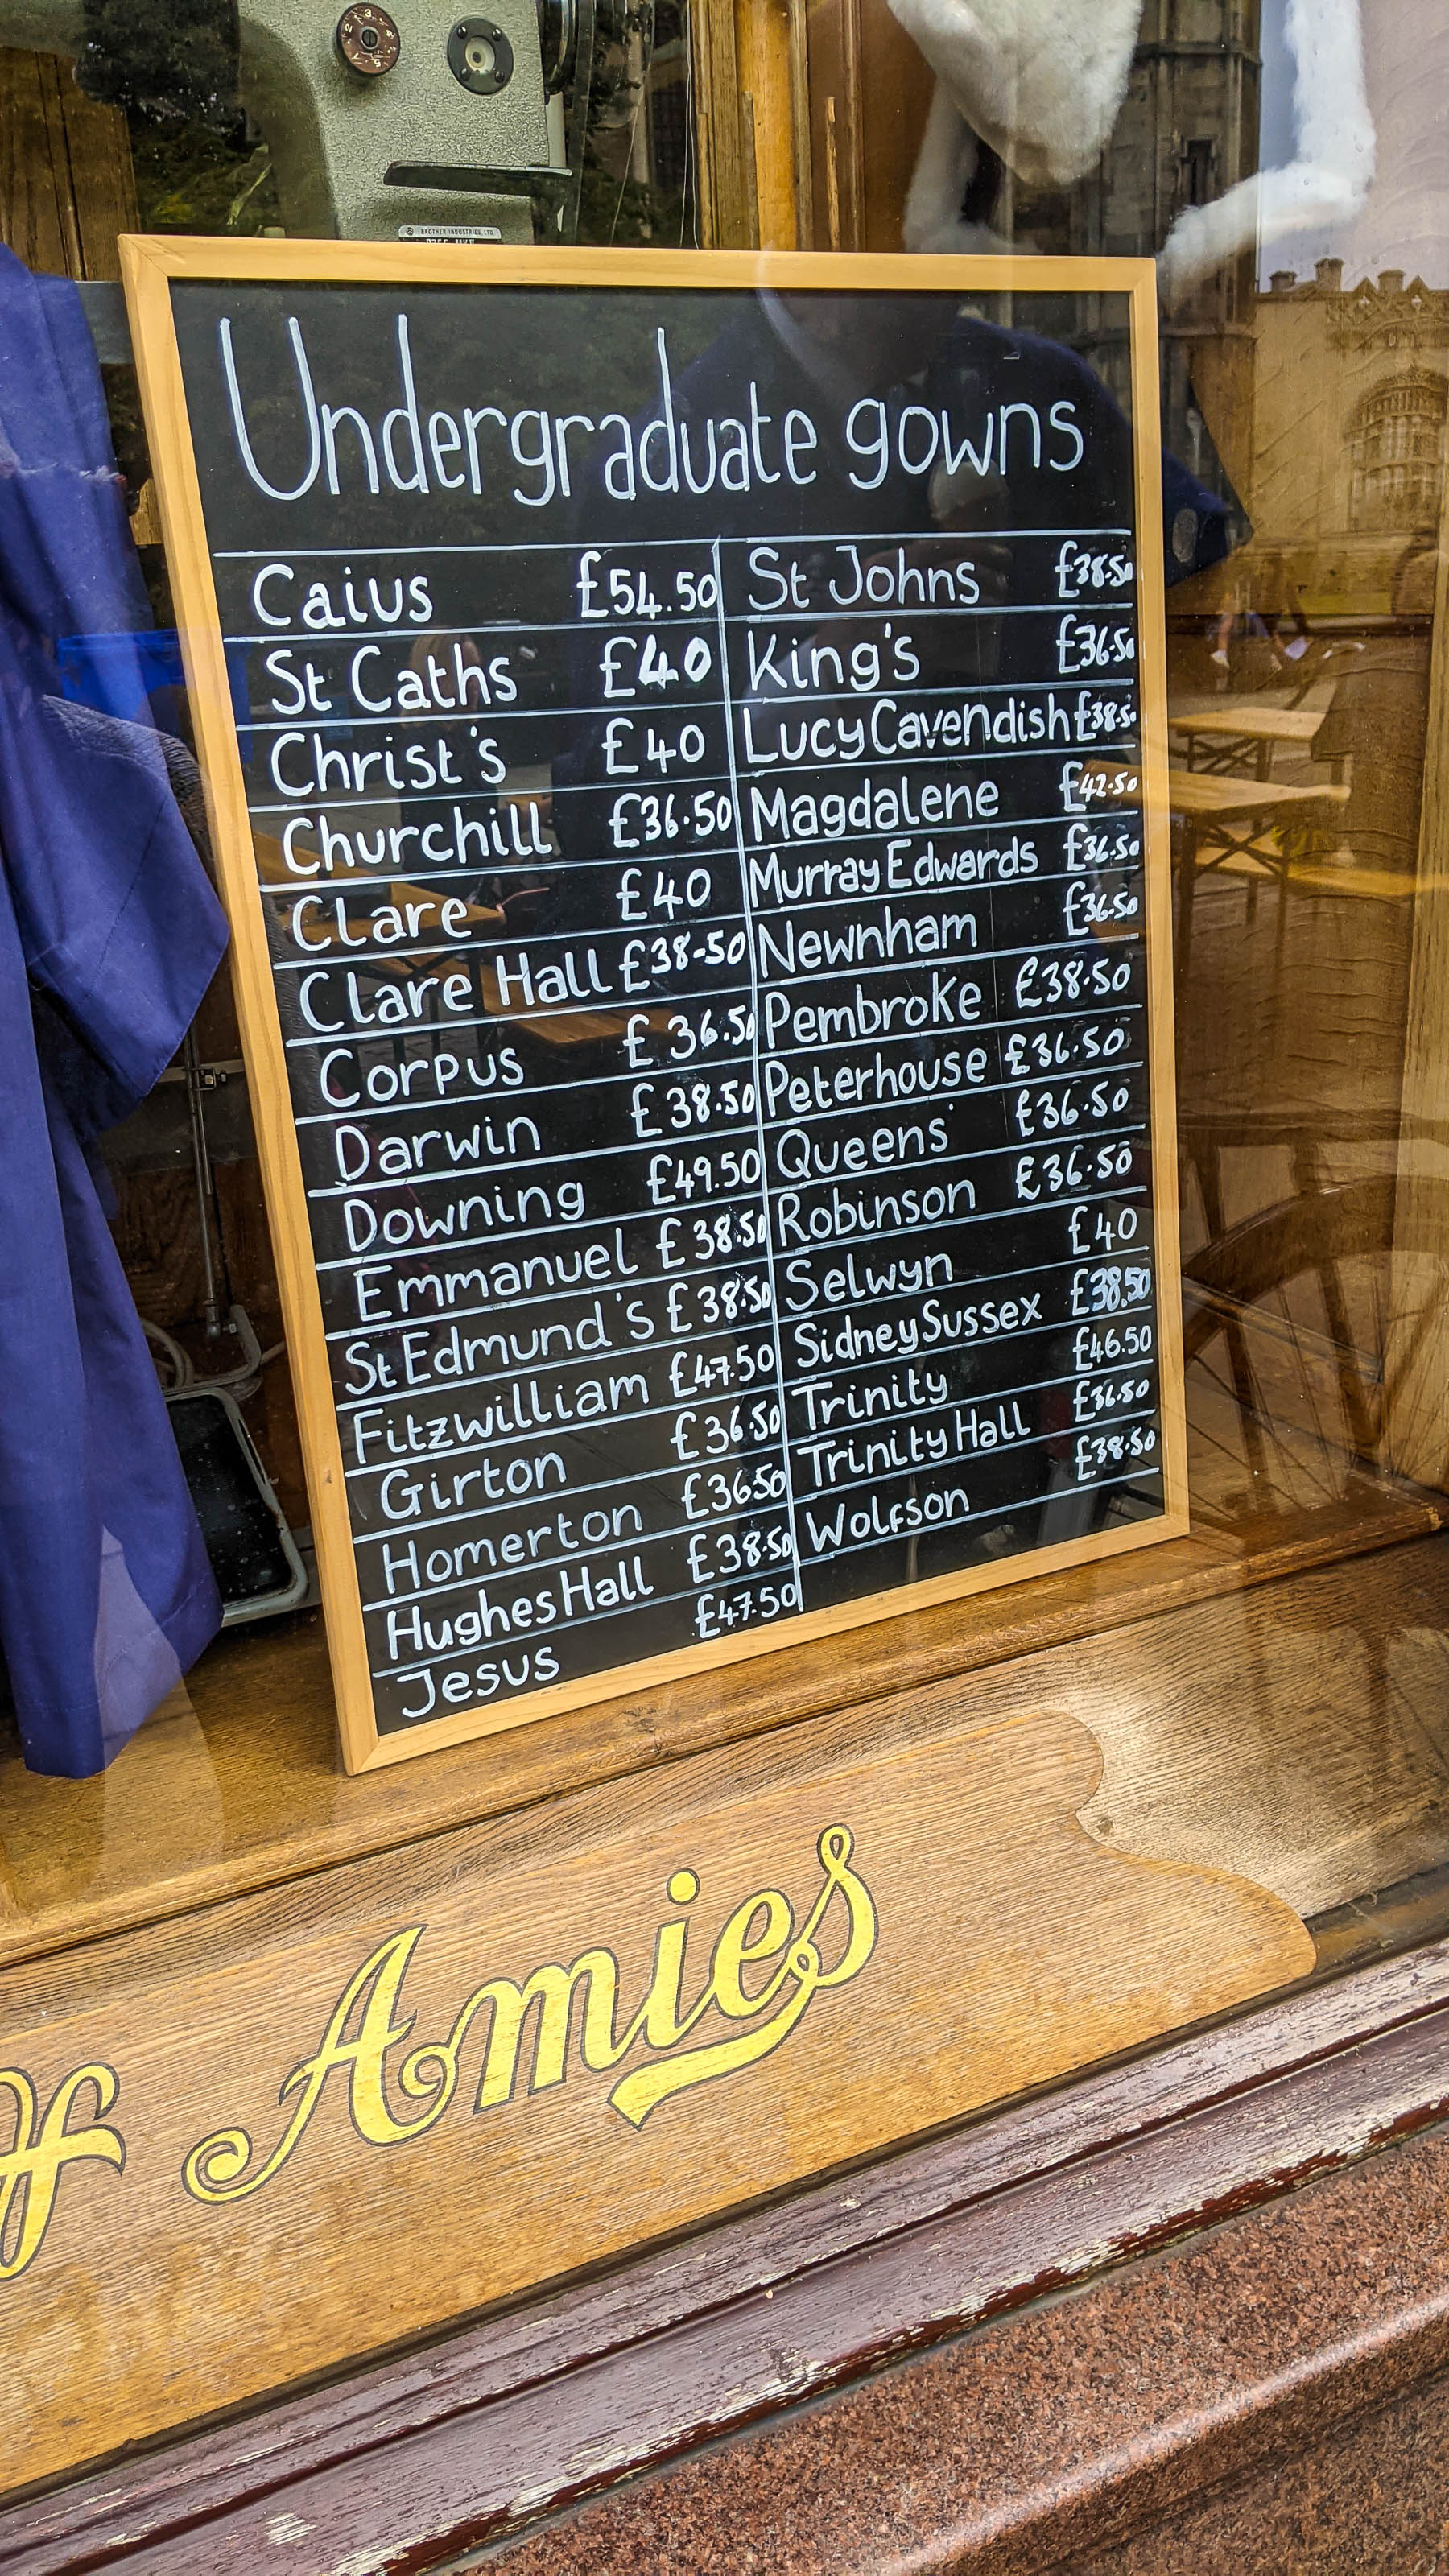 BROTHER INDUSTRIES, LTD.
Undergraduate gowns
Caius £54.50
St Caths £40
Christ's £40
Churchill £36.50
Clare £40
Clare Hall £38-50
Corpus £36.50
Darwin £38.50
Downing £49.50
Emmanuel £38.50
St Edmund's £38.50
Fitzwilliam £47.50
Girton £36.50
Homerton £36.50
Hughes Hall £38.50
Jesus £47.50
St Johns £38.50
King's £36.50
Lucy Cavendish £38.50
Magdalene £42.50
Murray Edwards £36.50
Newnham £36.50
Pembroke £38.50
Peterhouse £36.50
Queens' £36.50
Robinson £36.50
Selwyn £40
Sidney Sussex £38.50
Trinity £46.50
Trinity Hall £36.50
Wolfson £38.50
Amies